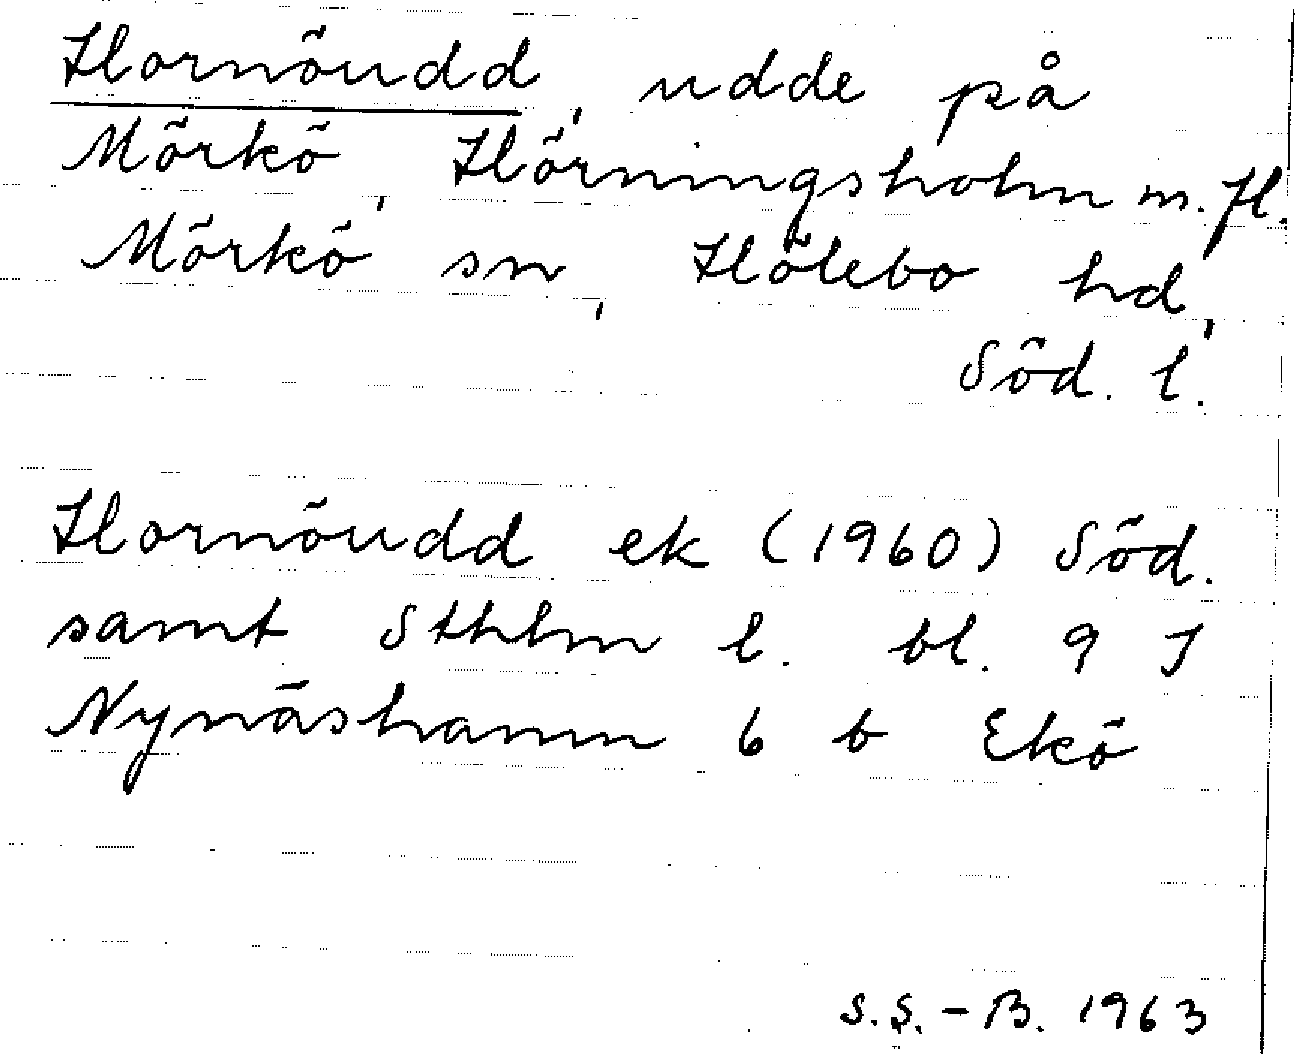 Hornöudd, udde på
Mörkö, Hörningsholm m.fl.
Mörkö sn, Hölebo hd,
Söd. l.
Hornöudd ek (1960) Söd.
samt Sthlm l. bl. 9 I
Nynäshamn 6 b Ekö
S.S.-B. 1963